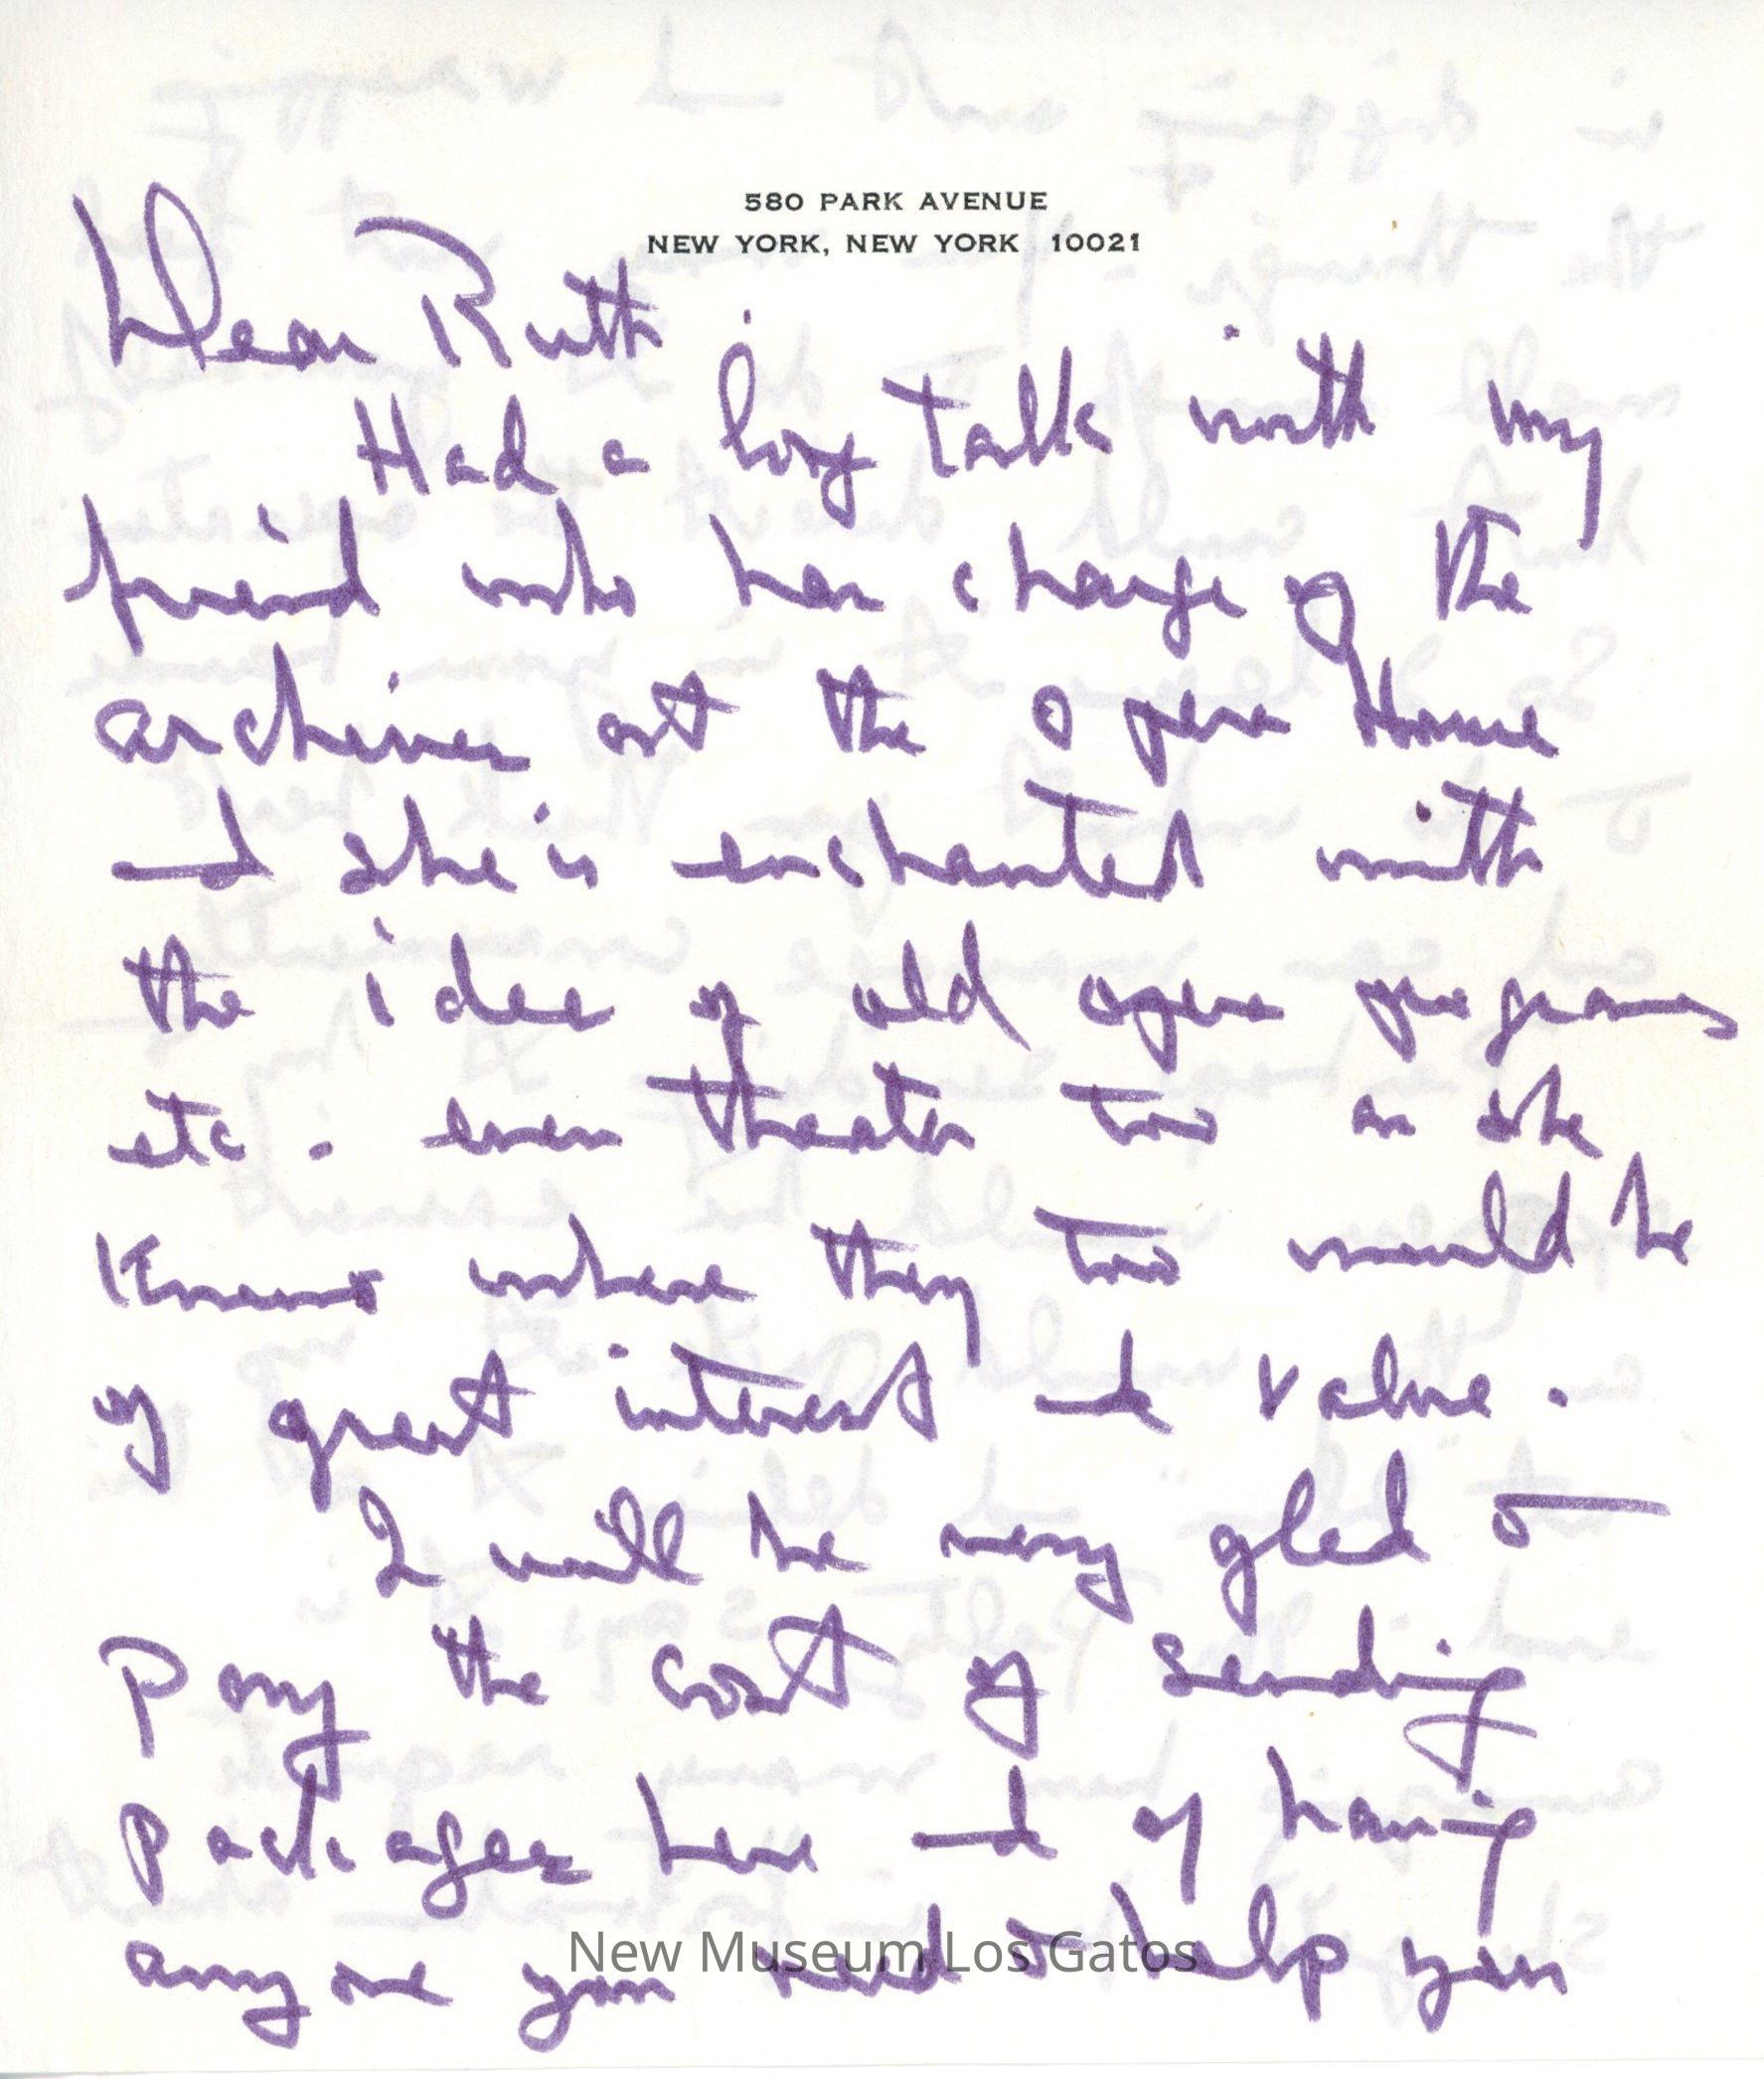 580 PARK AVENUE
NEW YORK, NEW YORK 10021
Dear Ruth
Had a long talk with my
friend who has charge of the
archives at the Opera House
and she is enchanted with
the idea of old opera programs
etc. even theater too as she
knows where they too would be
of great interest and value.
I will be very glad to
pay the cost of sending
packages here and of having
anyone you need to help you
New Museum Los Gatos